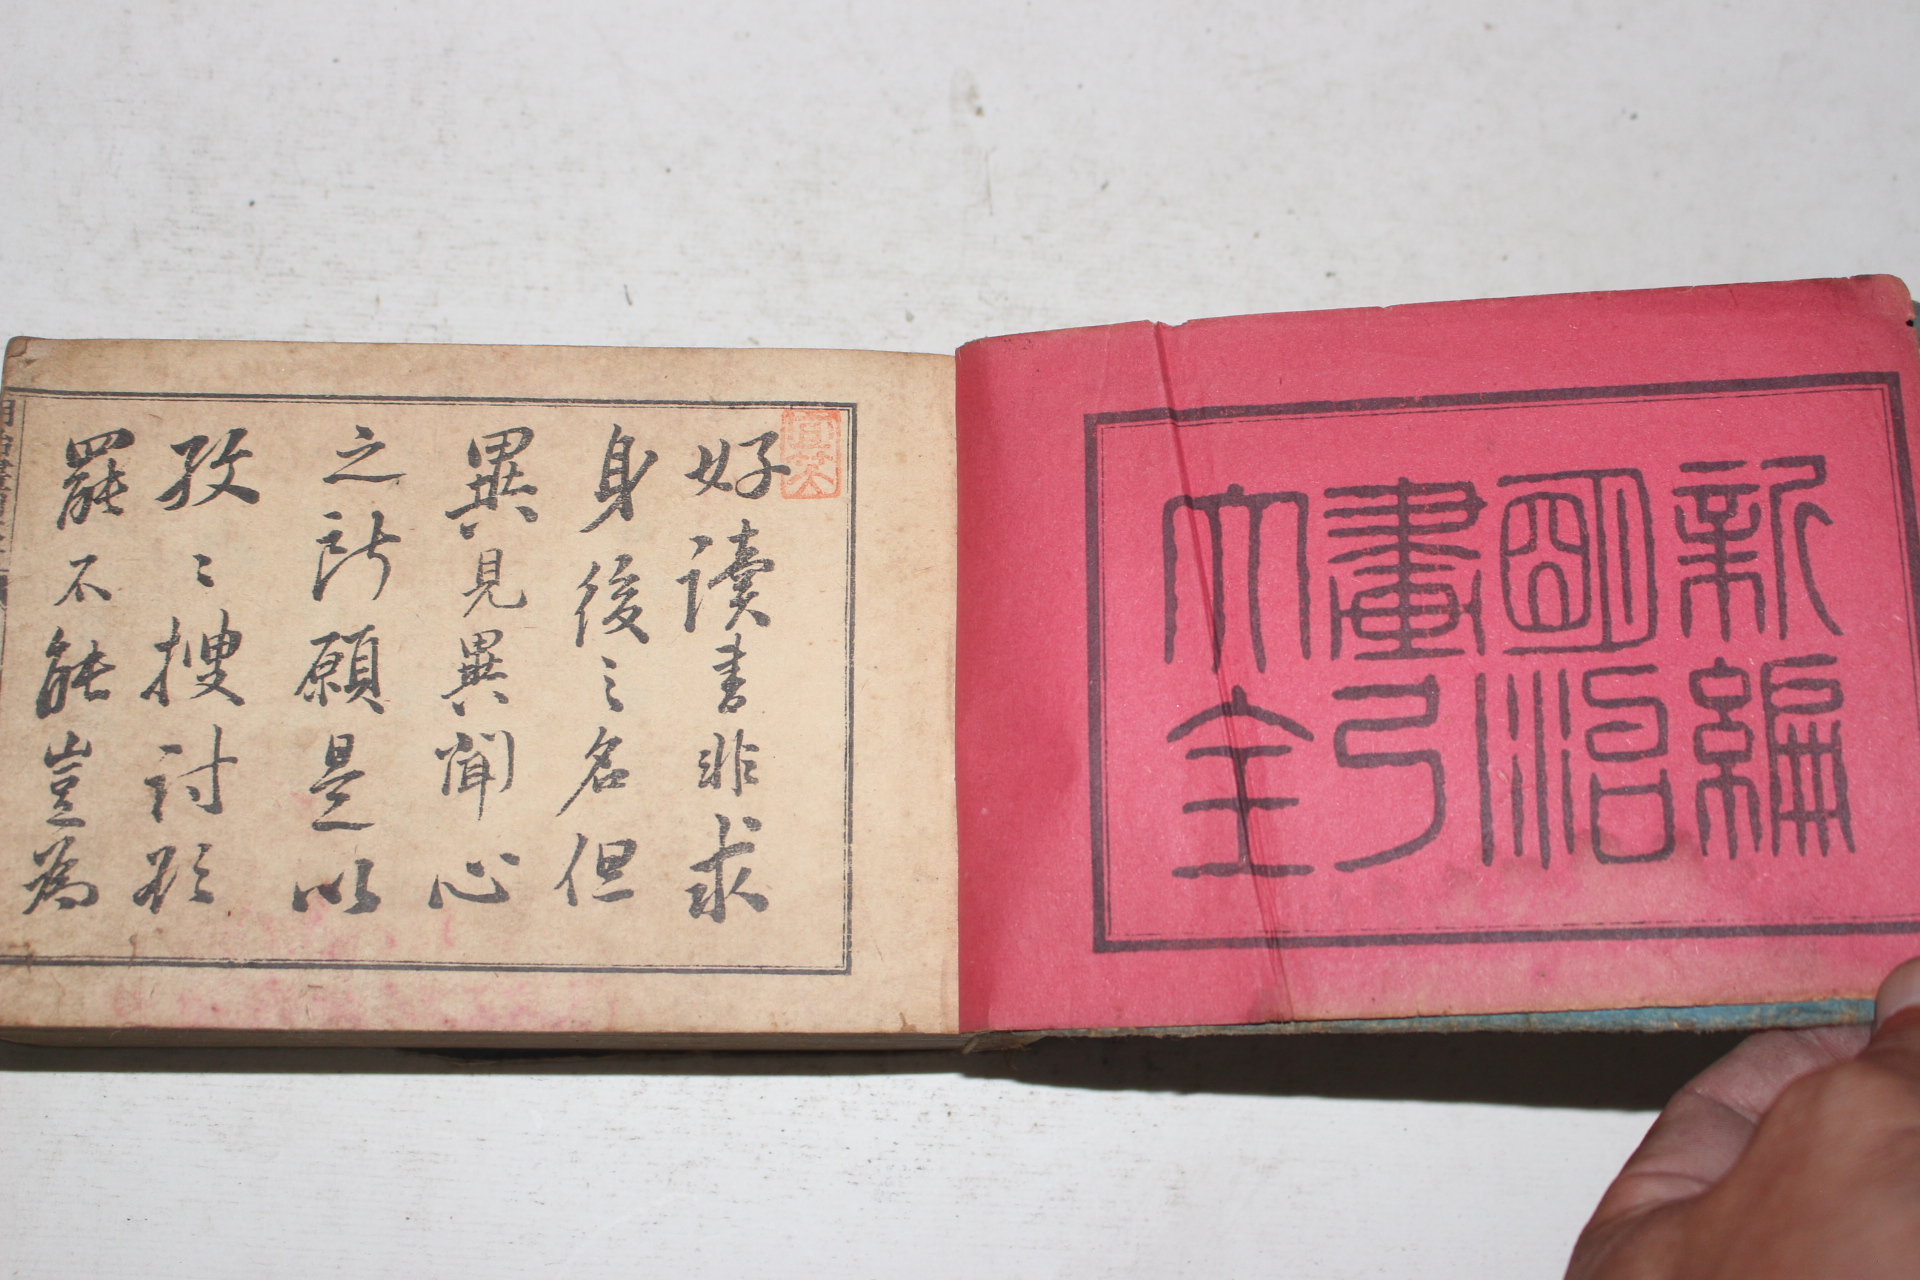 新編
明治
畫引
大全
好讀書非求
身後之名但
異見異聞心
之所願是以
孜〻搜討欲
罷不能豈為